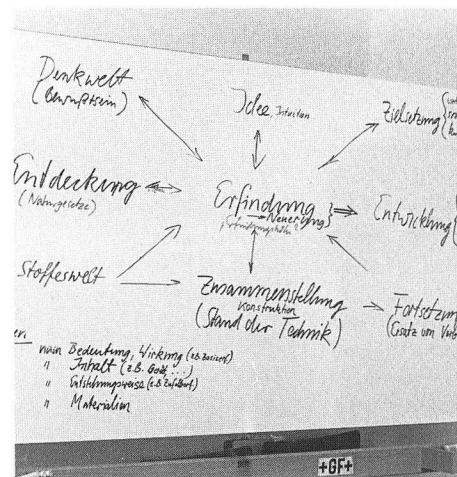 Denkwelt
(Bewußtsein)
Idee, Intuition
Zielsetzung {
Entdeckung
(Naturgesetze)
Erfindung
→ Neuerung }
Entwicklung {
Stoffeswelt
Zusammenstellung
Konstruktion
(Stand der Technik)
Fortsetzun
(Ersatz von
nach Bedeutung, Wirkung (z.B.
" Inhalt (z.B. ...)
" Entstehungsweise (z.B. Zufallserf.)
" Materialien
+GF+